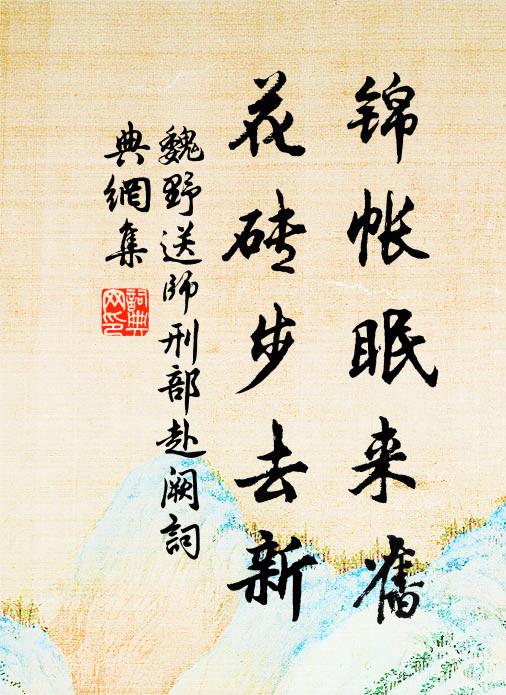 锦帐眠来旧
花砖步去新
魏野送師刑部赴阙詞
典網集
詞典网印